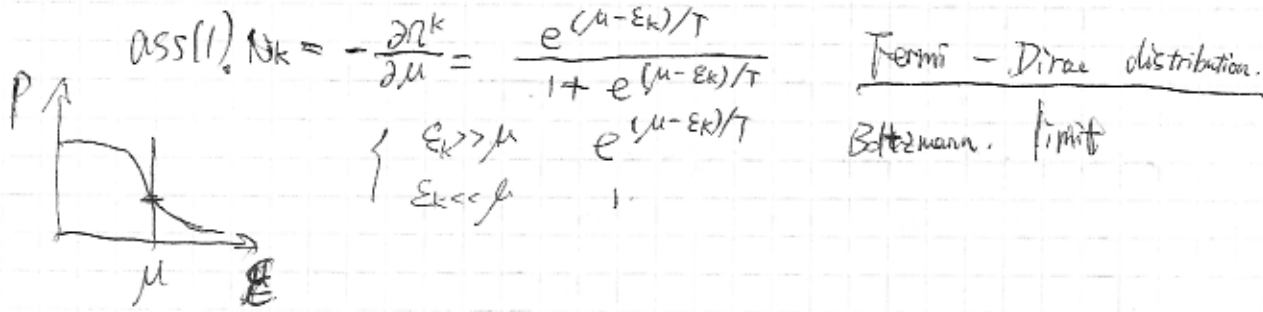 ass(1). N_k = - ∂Ω^k/∂μ = e^{(μ-ε_k)/T} / 1 + e^{(μ-ε_k)/T} Fermi - Dirac distribution.
P
{ ε_k >> μ e^{(μ-ε_k)/T} Boltzmann. limit
ε_k << μ 1.
μ E